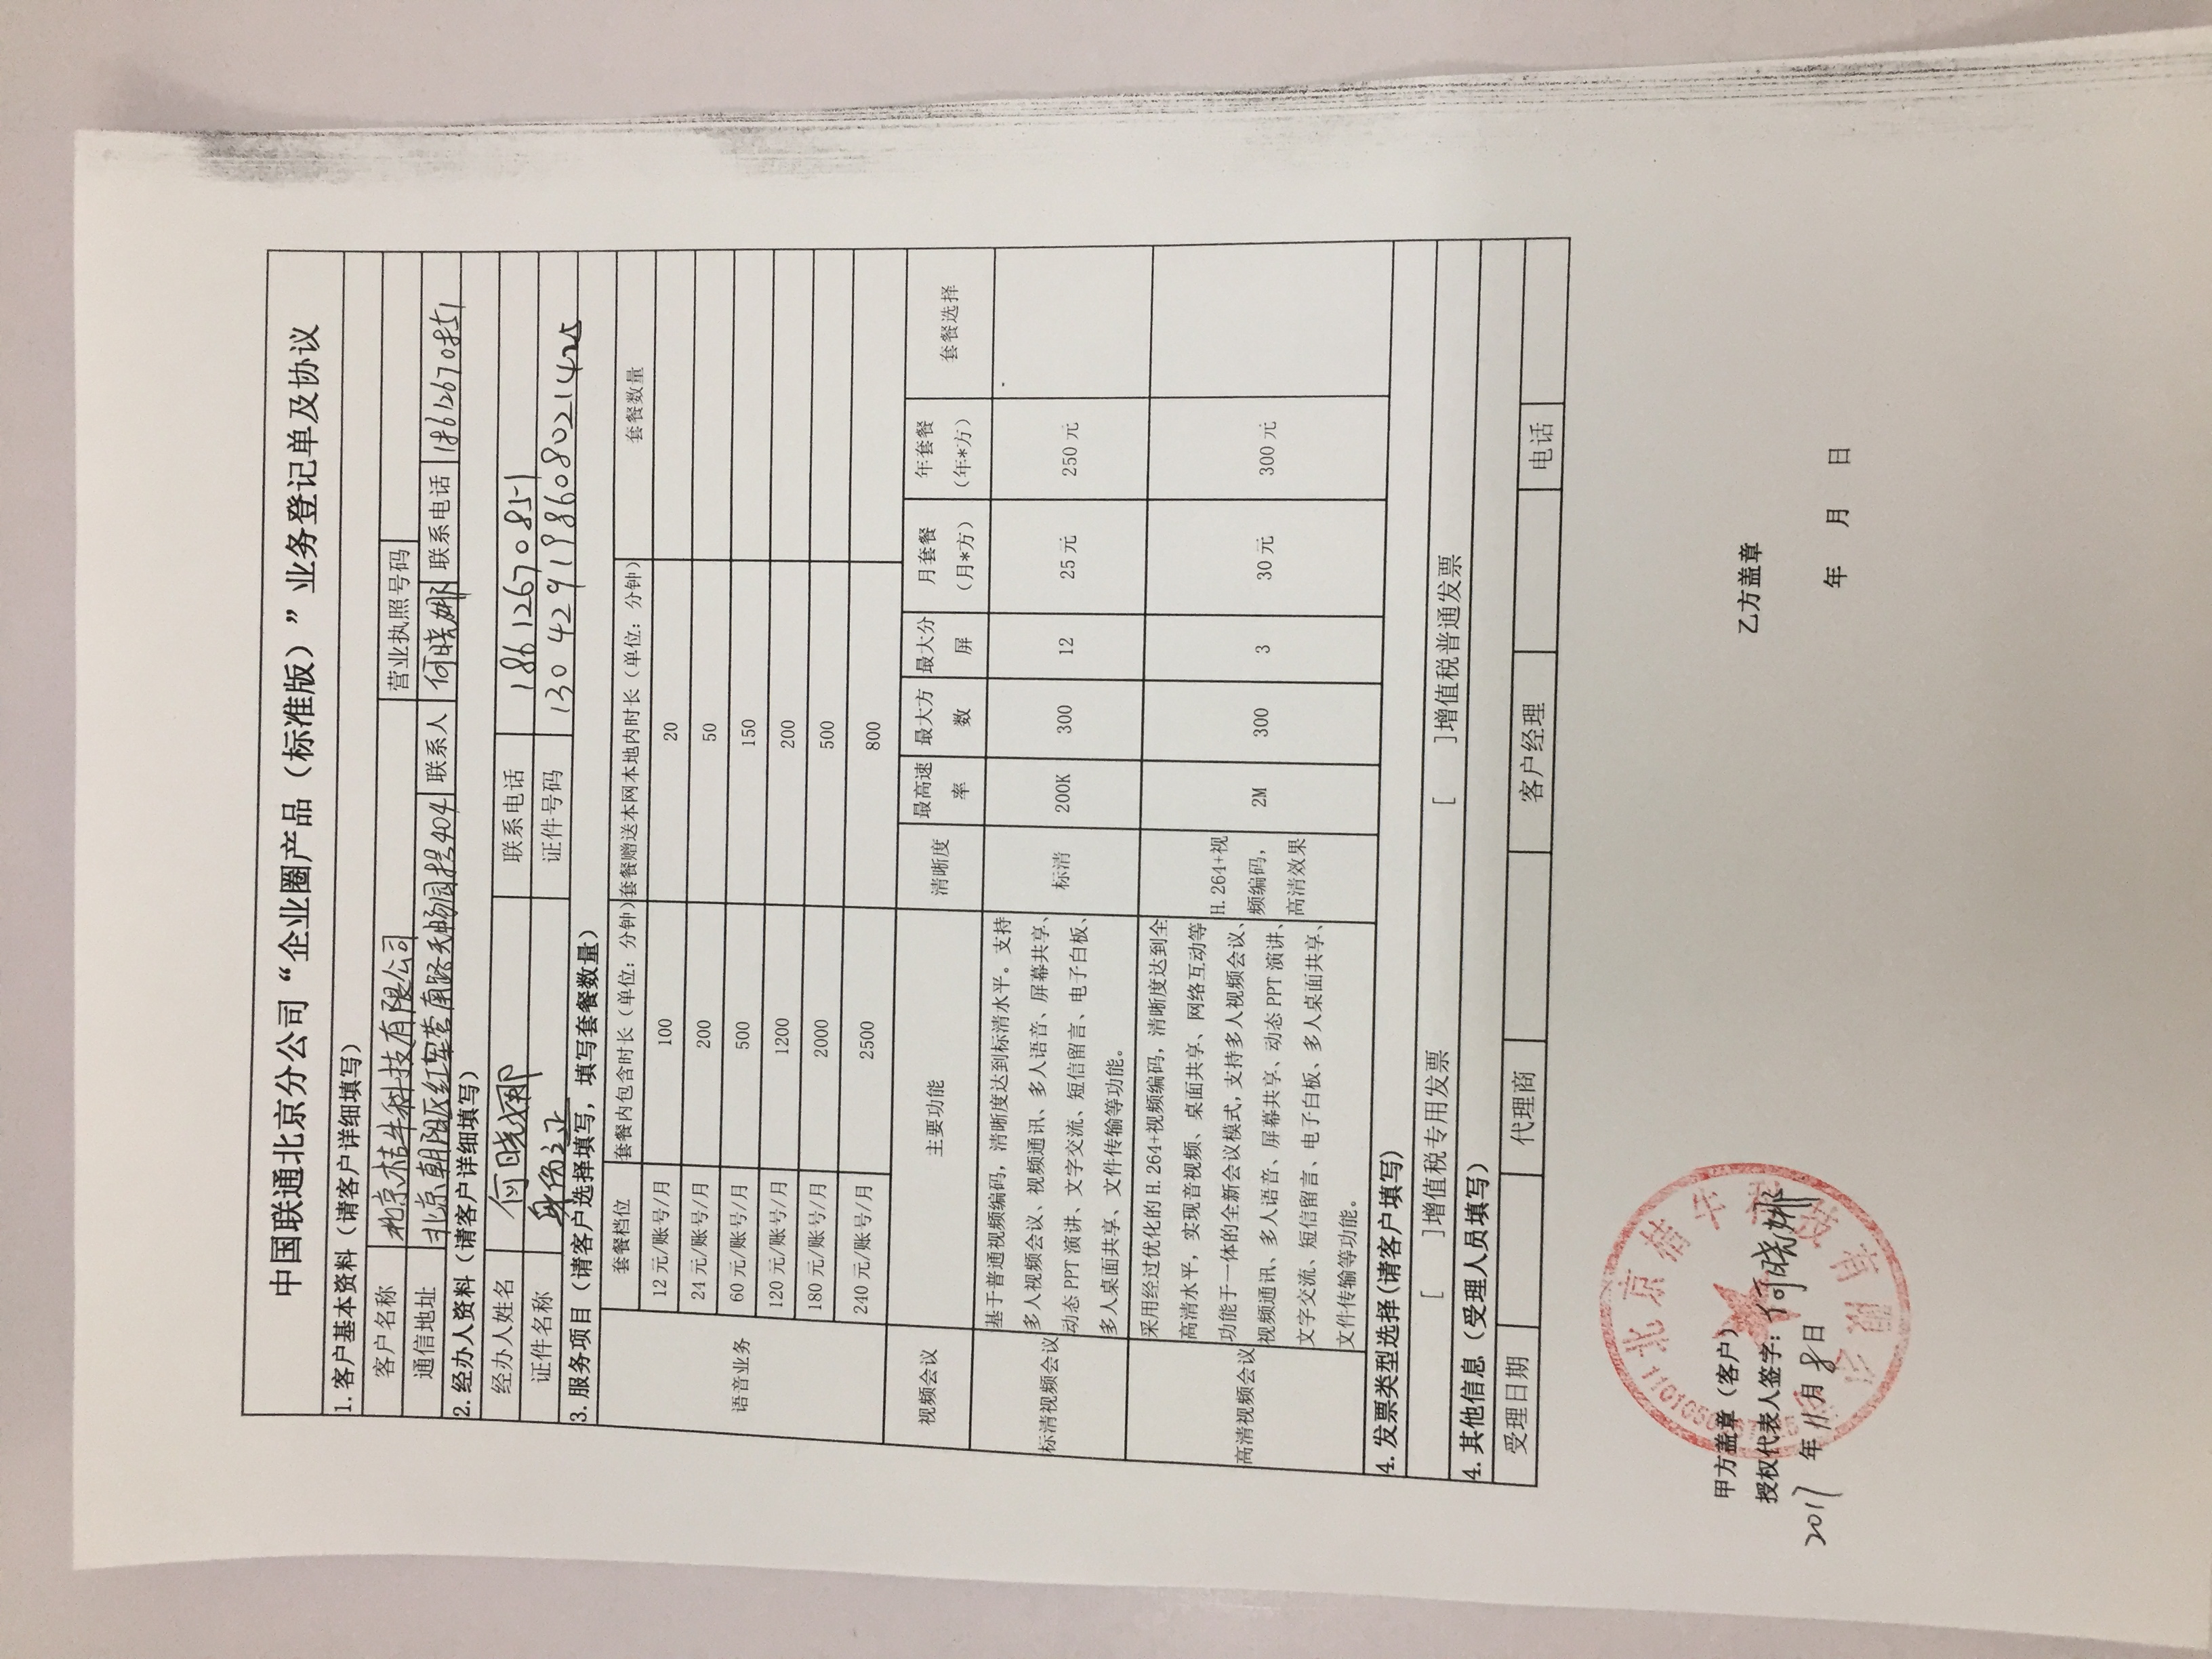 中国联通北京分公司“企业圈产品（标准版）”业务登记单及协议
1.客户基本资料（请客户详细填写）
客户名称 北京桔牛科技有限公司 营业执照号码
通信地址 北京朝阳区红军营南路天畅园 404 联系人 何晓娜 联系电话 18612670851
2.经办人资料（请客户详细填写）
经办人姓名 何晓娜 联系电话 18612670851
证件名称 身份证 证件号码 130429198608021425
3.服务项目（请客户选择填写，填写套餐数量）
语音业务
套餐档位 套餐内包含时长（单位：分钟） 套餐赠送本网本地内时长（单位：分钟） 套餐数量
12 元/账号/月 100 20
24 元/账号/月 200 50
60 元/账号/月 500 150
120 元/账号/月 1200 200
180 元/账号/月 2000 500
240 元/账号/月 2500 800
视频会议 主要功能 清晰度 最高速率 最大方数 最大分屏 月套餐（月*方） 年套餐（年*方） 套餐选择
标清视频会议
基于普通视频编码，清晰度达到标清水平。支持
多人视频会议、视频通讯、多人语音、屏幕共享、
动态 PPT 演讲、文字交流、短信留言、电子白板、
多人桌面共享、文件传输等功能。
标清 200K 300 12 25 元 250 元
高清视频会议
采用经过优化的 H.264+视频编码，清晰度达到全
高清水平，实现音视频、桌面共享、网络互动等
功能于一体的全新会议模式，支持多人视频会议、
视频通讯、多人语音、屏幕共享、动态 PPT 演讲、
文字交流、短信留言、电子白板、多人桌面共享、
文件传输等功能。
H.264+视
频编码，
高清效果
2M 300 3 30 元 300 元
4.发票类型选择(请客户填写)
[ ]增值税专用发票 [ ]增值税普通发票
4.其他信息（受理人员填写）
受理日期 代理商 客户经理 电话
北京桔牛科技有限公司
甲方盖章（客户）
授权代表人签字：何晓娜
2017 年 11 月 8 日
乙方盖章
年 月 日